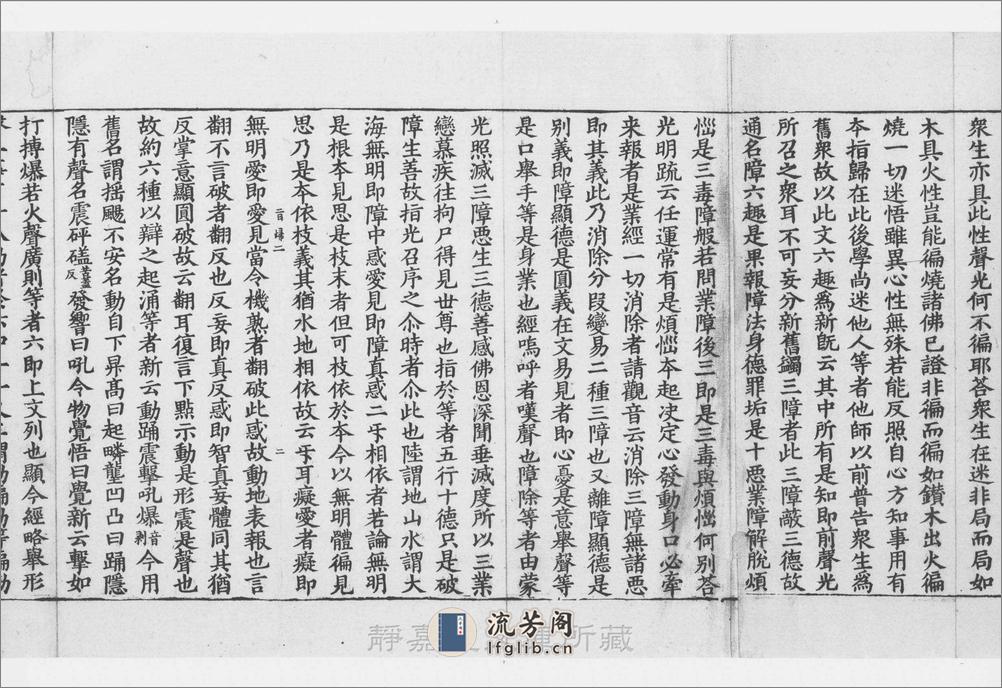 衆生亦具此性聲光何不徧耶荅衆生在迷非局而局如
木具火性豈能徧燒諸佛已證非徧而徧如鑽木出火徧
燒一切迷悟雖異心性無殊若能反照自心方知事用有
夲指歸在此後學尚迷他人等者他師以前普告衆生爲
舊衆故以此文六趣爲新旣云其中所有是知即前聲光
所召之衆耳不可妄分新舊蠲三障者此三障敵三德故
通名障六趣是果報障法身德罪垢是十惡業障解脫煩
惱是三毒障般若問業障後三即是三毒與煩惱何別荅
光明疏云任運常有是煩惱夲起决定心發動身口必牽
来報者是業經一切消除者請觀音云消除三障無諸惡
即其義此乃消除分段變易二種三障也又離障顯德是
別義即障顯德是圓義在文易見者即心憂是意舉聲等
是口舉手等是身業也經嗚呼者嘆聲也障除等者由蒙
光照滅三障惡生三德善感佛恩深聞垂滅度所以三業
戀慕疾往拘尸得見世尊也指於等者五行十德只是破
障生善故指光召序之尒時者尒此也陸謂地山水謂大
海無明即障中惑愛見即障真惑二㸦相依者若論無明
是根夲見思是枝末者但可枝依於夲今以無明體徧見
思乃是夲依枝義其猶水地相依故云㸦耳癡愛者癡即
無明愛即愛見當令機熟者翻破此惑故動地表報也言
翻不言破者翻反也反妄即真反惑即智真妄體同其猶
反掌意顯圓破故云翻耳復言下㸃示動是形震是聲也
故約六種以辯之起涌等者新云動踊震擊吼爆音剥今用
舊名謂揺颺不安名動自下昇髙曰起𤲬壟凹凸曰踊隱
隱有聲名震砰磕蓋反發響曰吼令物覺悟曰覺新云擊如
打搏爆若火聲廣則等者六即上文列也顯今經略舉形
靜嘉 所藏
流芳阁
lfglib.cn